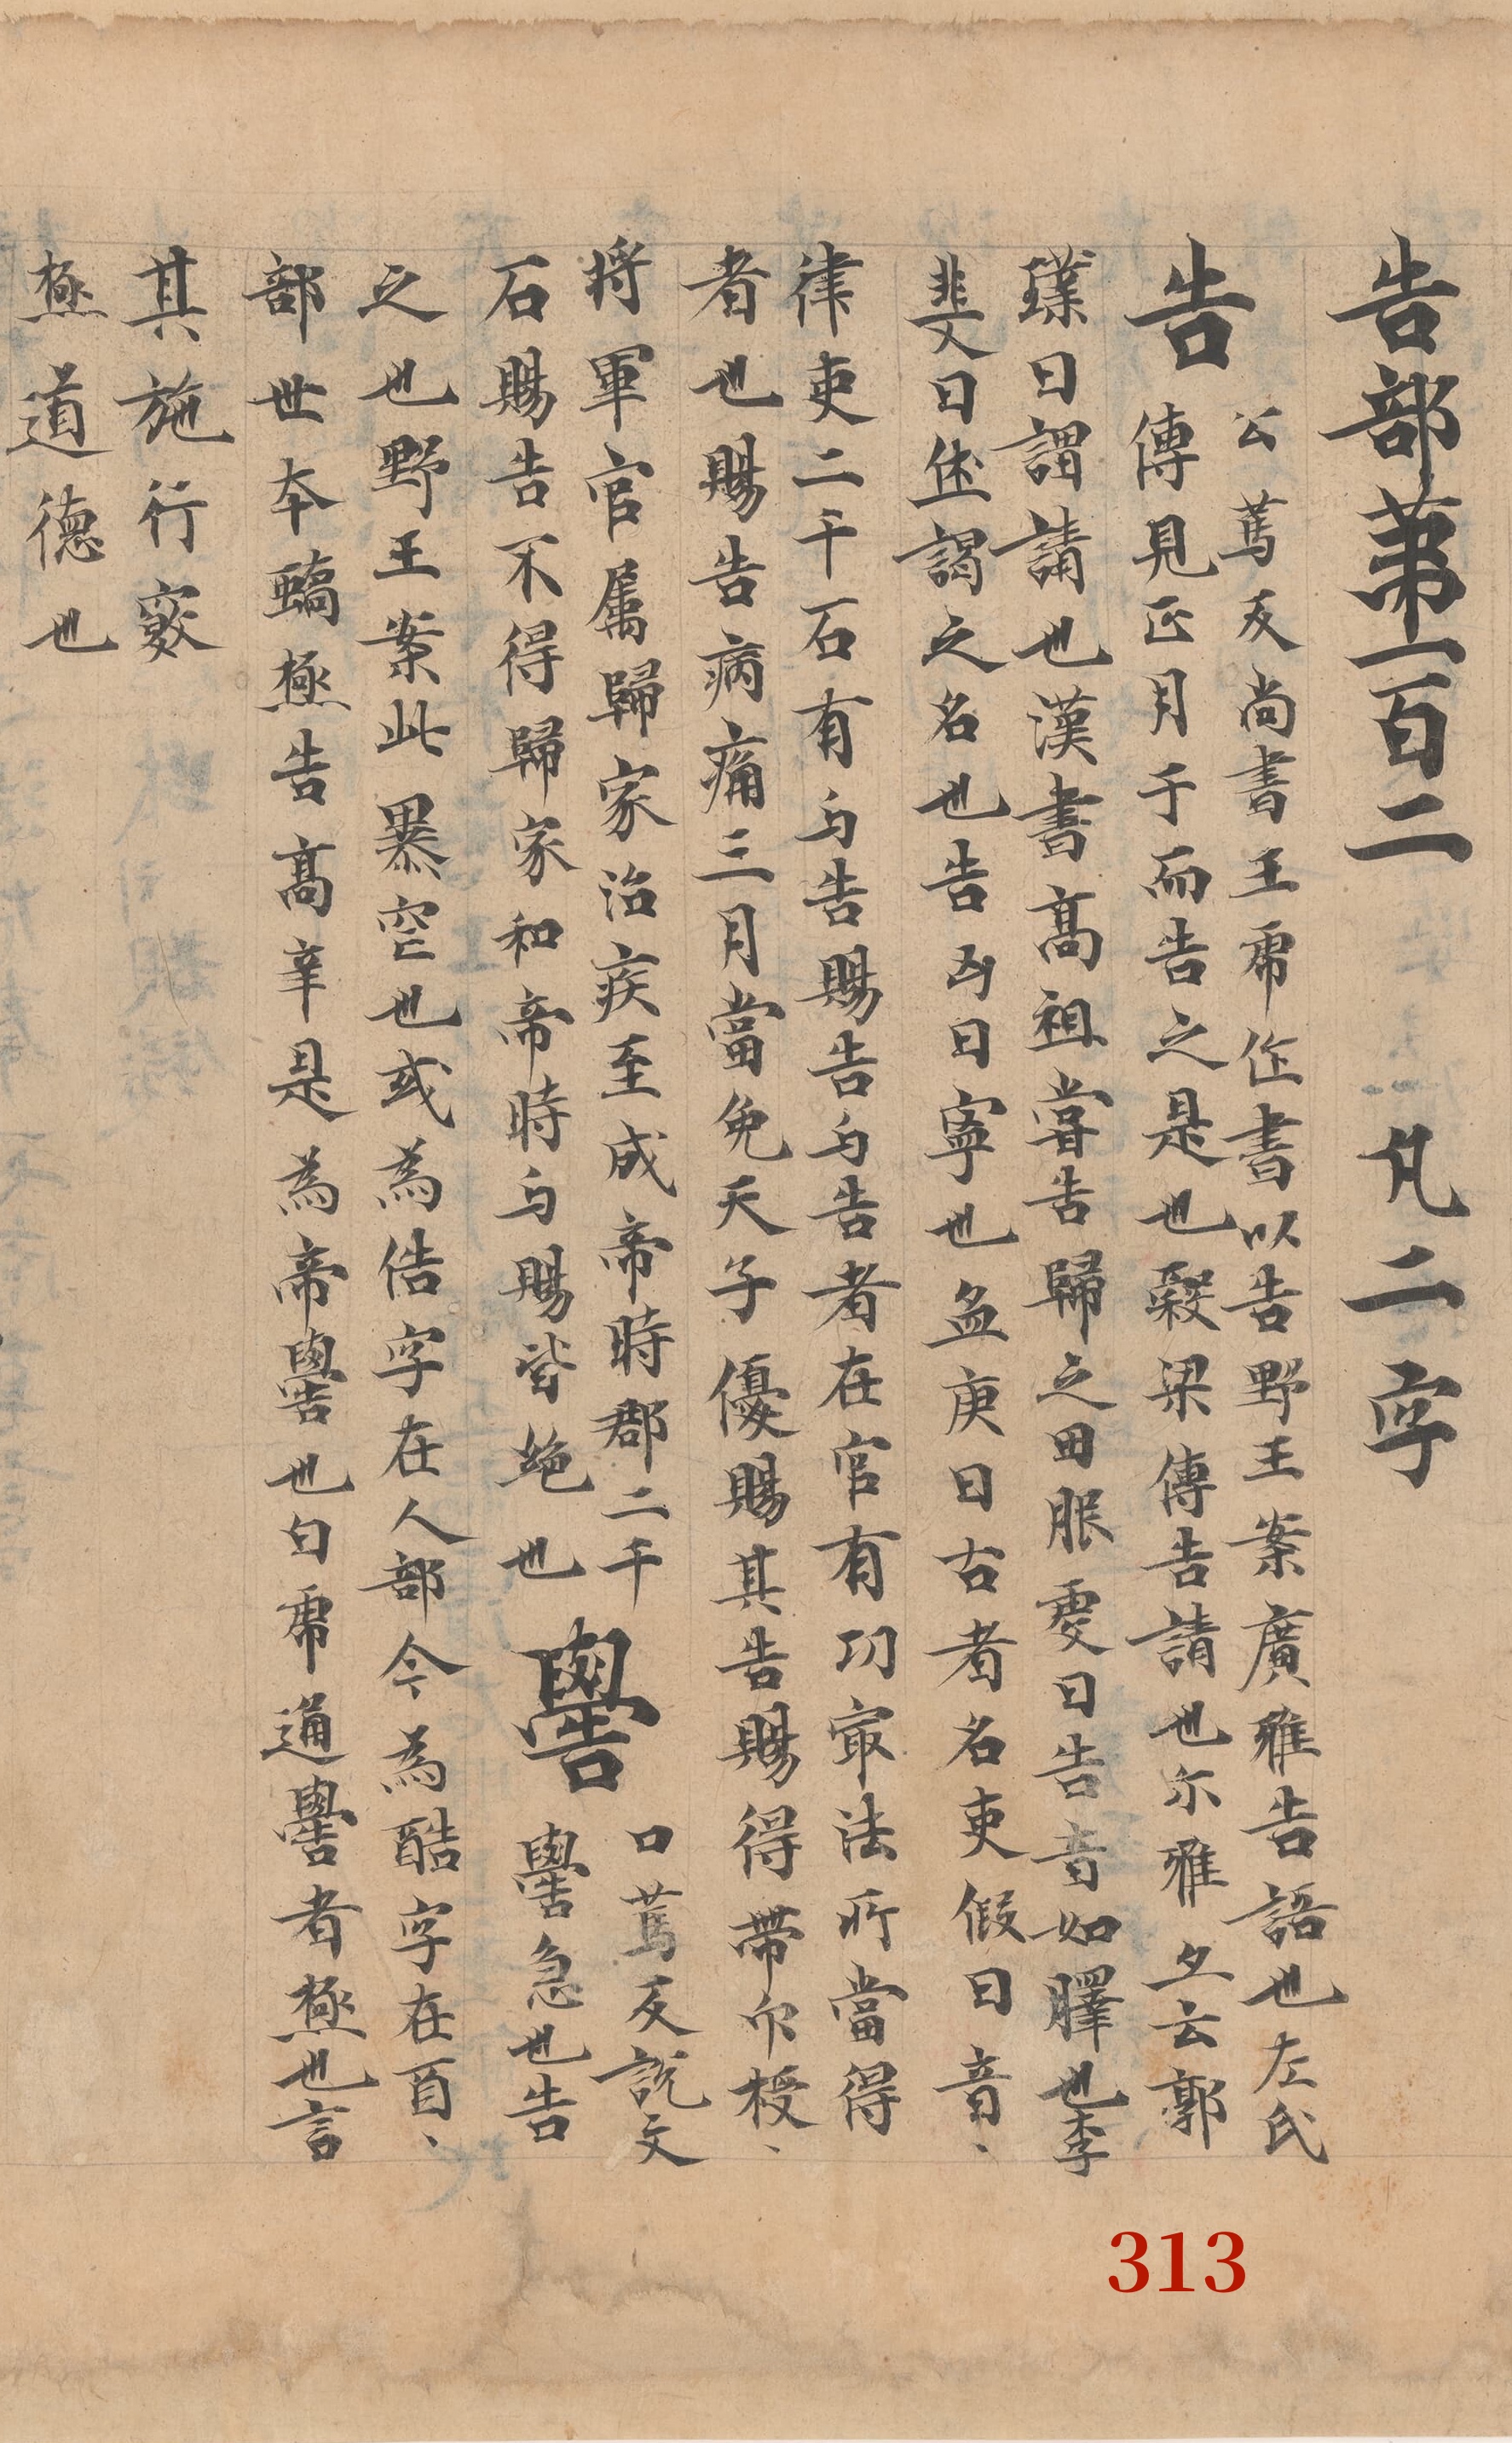 告部第一百二　凡二字
告
公蔦反尚書王庸作書以告野王案廣雅告語也左氏
傳見正月于而告之是也穀梁傳告請也尓雅亦云郭
璞曰謂請也漢書高祖甞告歸之田服虔曰告音如嘷也李
斐曰休謁之名也告凶曰寧也孟康曰古者名吏假曰音、
律吏二千石有与告賜告与告者在官有功冣法所當得
者也賜告病痛三月當免天子優賜其告賜得帶印授、
將軍官属歸家治疾至成帝時郡二千
石賜告不得歸家和帝時与賜皆絶也
嚳
口蔦反説文
嚳急也告
之也野王案此暴空也或為俈字在人部今為酷字在酉、
部世本蟜極告高辛是為帝嚳也白虎通嚳者極也言
其施行窮
極道德也
313